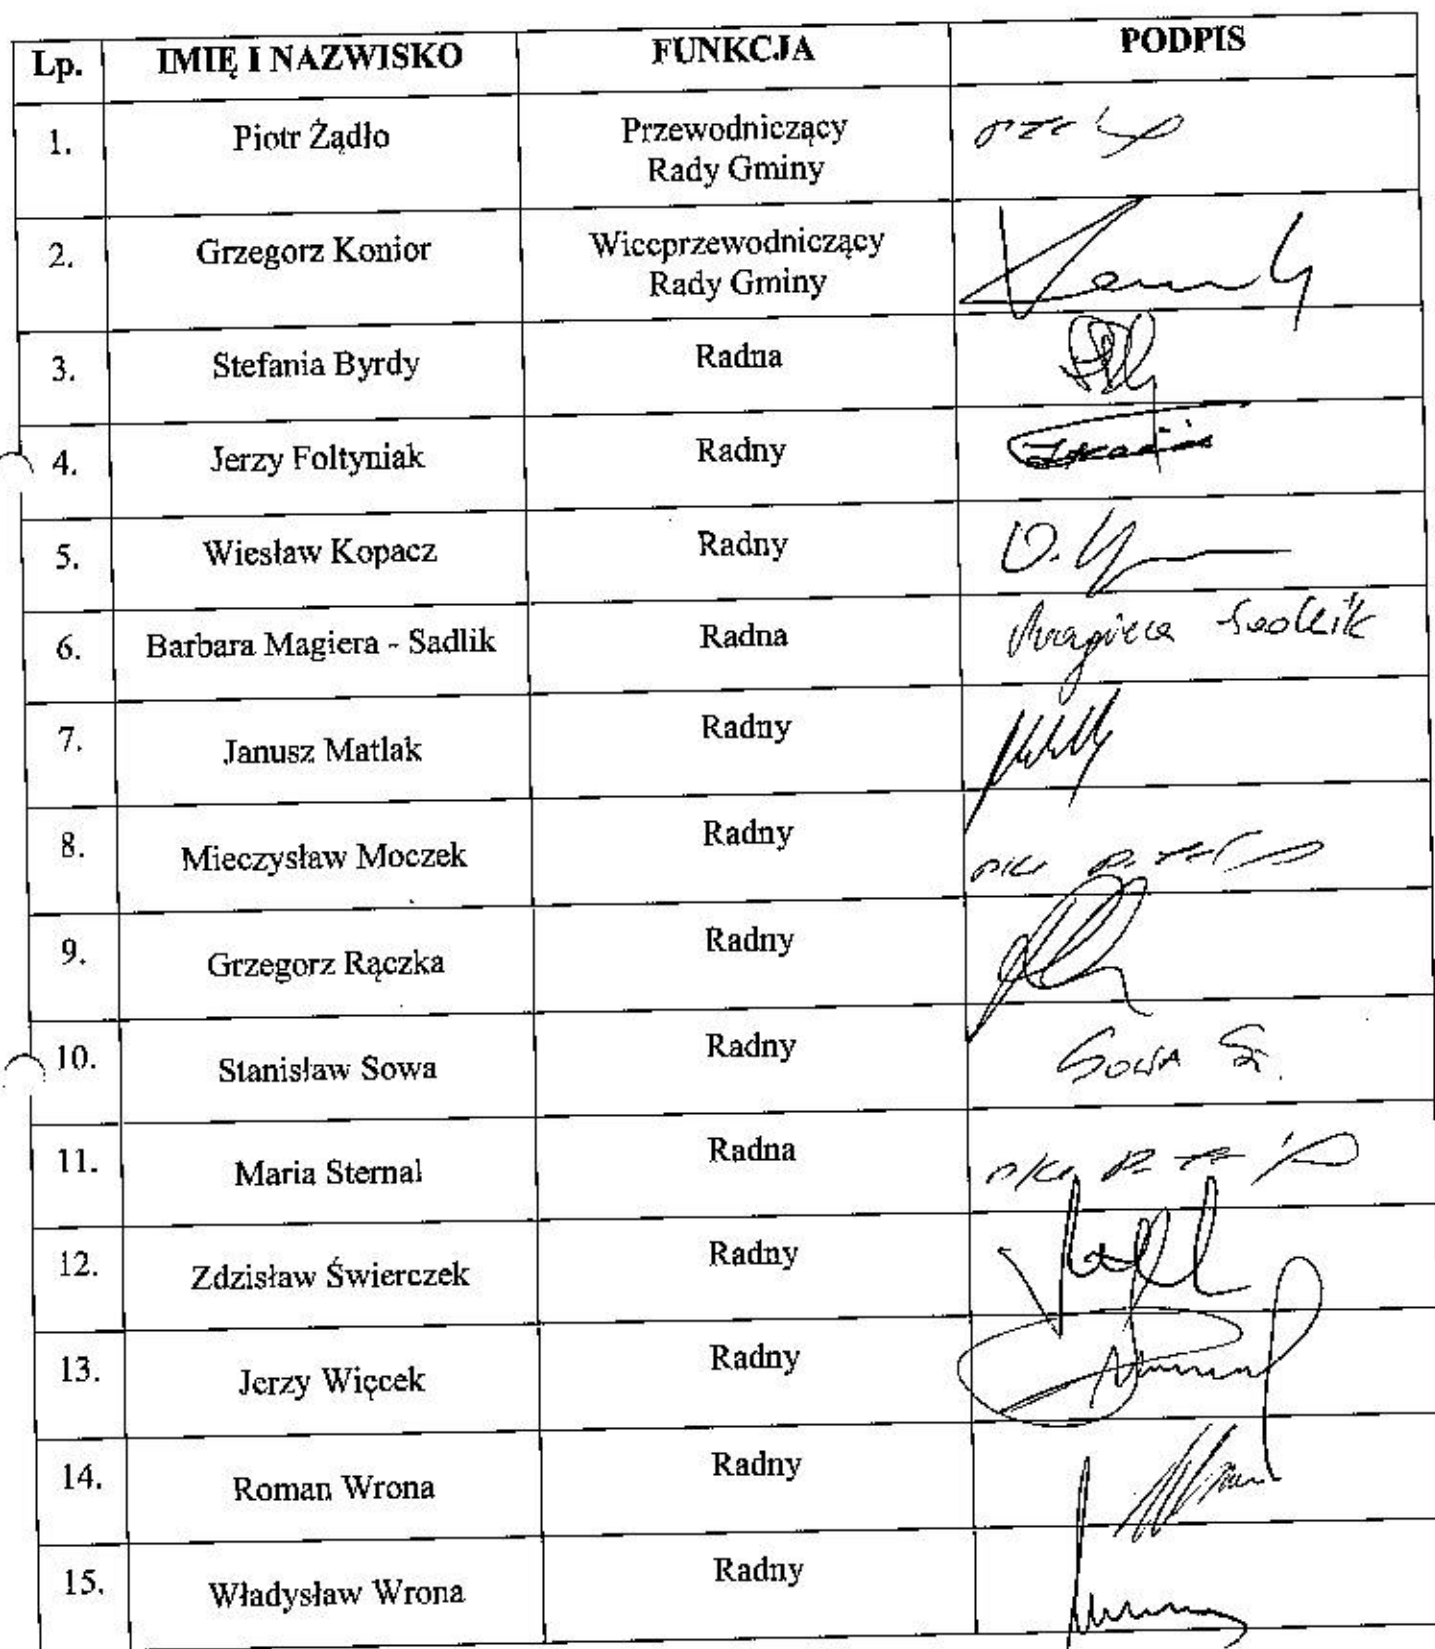 Lp. IMIĘ I NAZWISKO FUNKCJA PODPIS
1. Piotr Żądło Przewodniczący
Rady Gminy
2. Grzegorz Konior Wiceprzewodniczący
Rady Gminy
3. Stefania Byrdy Radna
4. Jerzy Foltyniak Radny
5. Wiesław Kopacz Radny
6. Barbara Magiera - Sadlik Radna Magiera Sadlik
7. Janusz Matlak Radny
8. Mieczysław Moczek Radny
9. Grzegorz Rączka Radny
10. Stanisław Sowa Radny Sowa St.
11. Maria Sternal Radna
12. Zdzisław Świerczek Radny
13. Jerzy Więcek Radny
14. Roman Wrona Radny
15. Władysław Wrona Radny